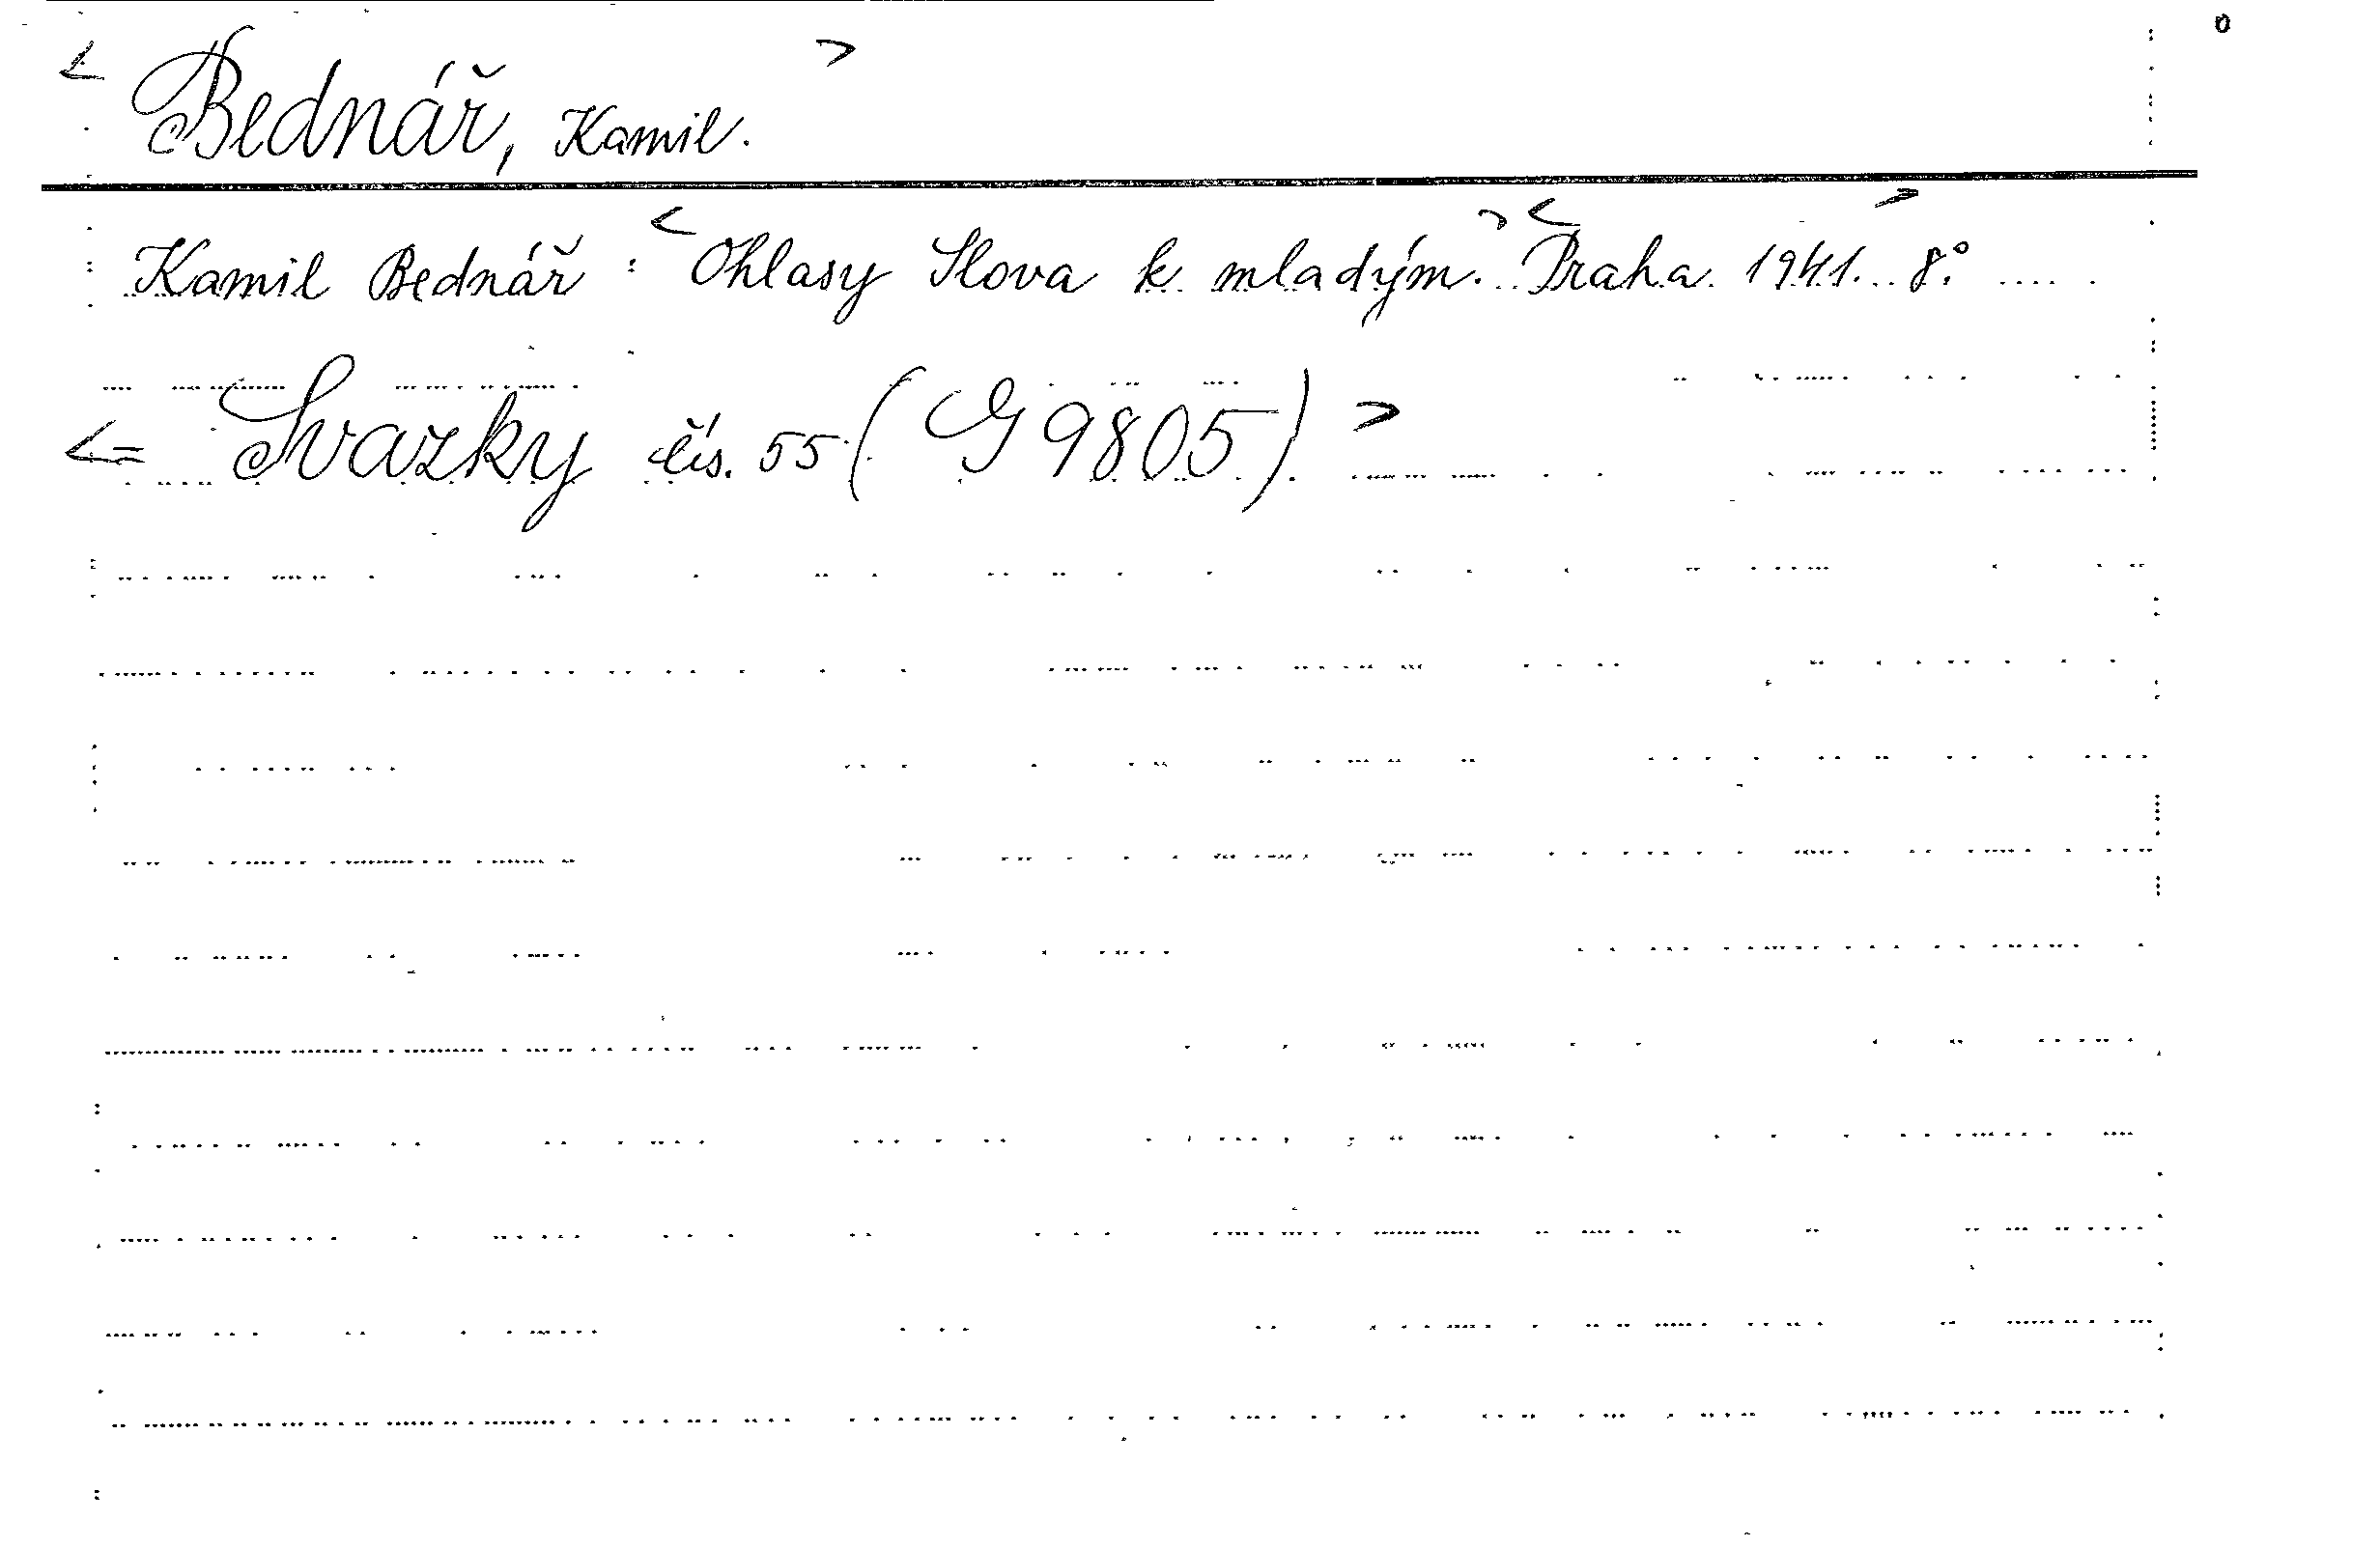 < Bednář, Kamil. >
Kamil Bednář : < Ohlasy Slova k mladým. > < Praha 1941. 8.° >
<= Svazky čís. 55 (G 9805). >